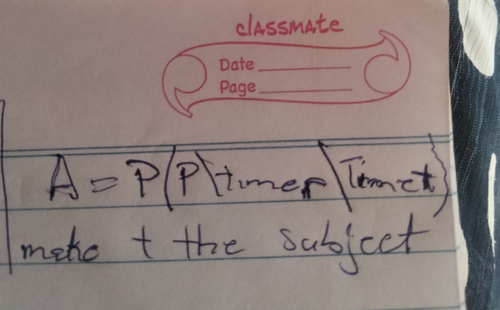 classmate
Date
Page
A = P(P\timer\Timet)
make t the subject